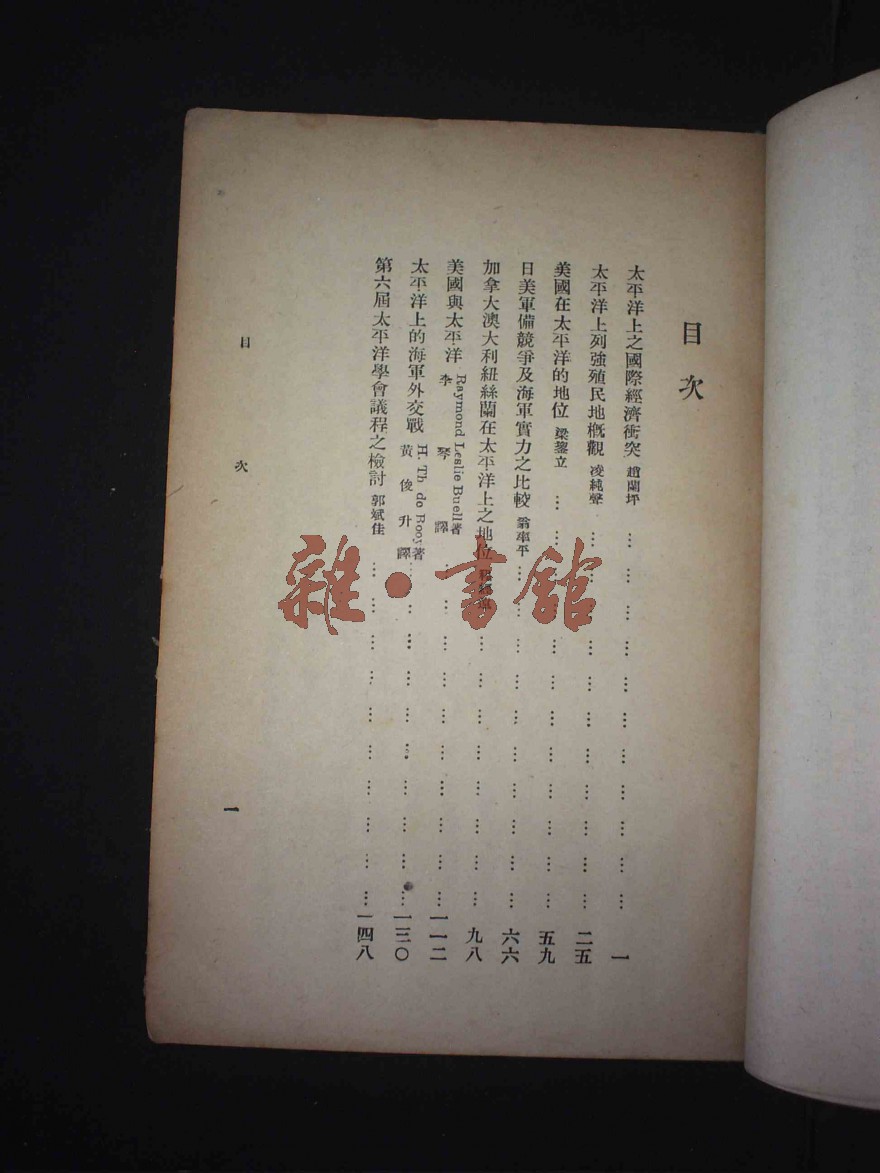 目次
太平洋上之國際經濟衝突 趙蘭坪 … … … … … … … … … … 一
太平洋上列強殖民地概觀 凌純聲 … … … … … … … … … … 二五
美國在太平洋的地位 梁鋆立 … … … … … … … … … … 五九
日美軍備競爭及海軍實力之比較 翁率平 … … … … … … … … … 六六
加拿大澳大利紐絲蘭在太平洋上之地位 … … … … … … … 九八
美國與太平洋 Raymond Leslie Buell著 李琴譯 … … … … … … … … … 一一二
太平洋上的海軍外交戰 H. Th de Booy著 黃俊升譯 … … … … … … … … … 一三〇
第六屆太平洋學會議程之檢討 郭斌佳 … … … … … … … … … 一四八
目次
一
雜·書館